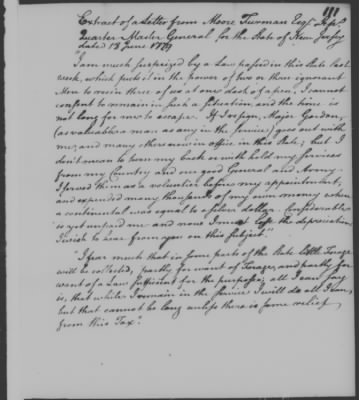 111
Extract of a Letter from Moore Furman Esqr. Depy.
Quarter Master General for the State of New Jersey
dated 18 June 1779
"I am much surprized by a Law passed in this State last
week, which puts it in the power of two or three ignorant
Men to ruin three of us at one dash of a pen, I cannot
consent to remain in such a situation, and the time is
not long for me to escape. If I resign, Major Gordon,
(as valuable a man as any in the service) goes out with
me, and many others now in office in this State; but I
don't mean to turn my back or with hold my services
from my Country and our good General and Army.
I served them as a volunteer before my appointment,
and expended many thousands of my own money when
a continental was equal to a silver dollar. Considerable
is yet unpaid me and now I must the depreciation
I wish to hear from you on this subject."
"I fear much that in some parts of the State little Forage
will be collected, partly for want of Forage, and partly for
want of a Law sufficient for the purpose; all I can say
is, that while I remain in the service I will do all I can,
but that cannot be long unless there is some relief
from this Tax."